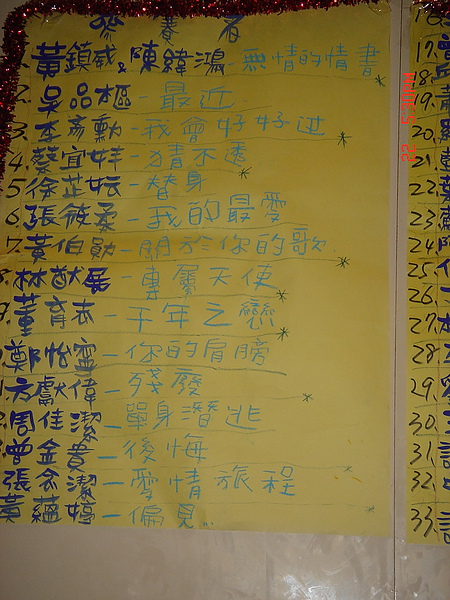 參賽者
1. 黃鎮威 & 陳緯鴻 - 無情的情書
2. 吳品樞 - 最近
3. 李彥勳 - 我會好好過
4. 蔡宜妦 - 猜不透
5. 徐芷妘 - 替身
6. 張筱柔 - 我的最愛
7. 黃伯勛 - 關於你的歌
8. 林猷展 - 專屬天使
9. 董育志 - 千年之戀
鄭怡寧 - 你的肩膀
方獻偉 - 殘廢
周佳潔 - 單身潛逃
曾金貴 - 後悔
張念潔 - 愛情旅程
黃蘊婷 - 偏見
16.
17.
18.
19.
20.
21.
22.
23.
24.
25.
26.
27.
28.
29.
30.
31.
32.
33.